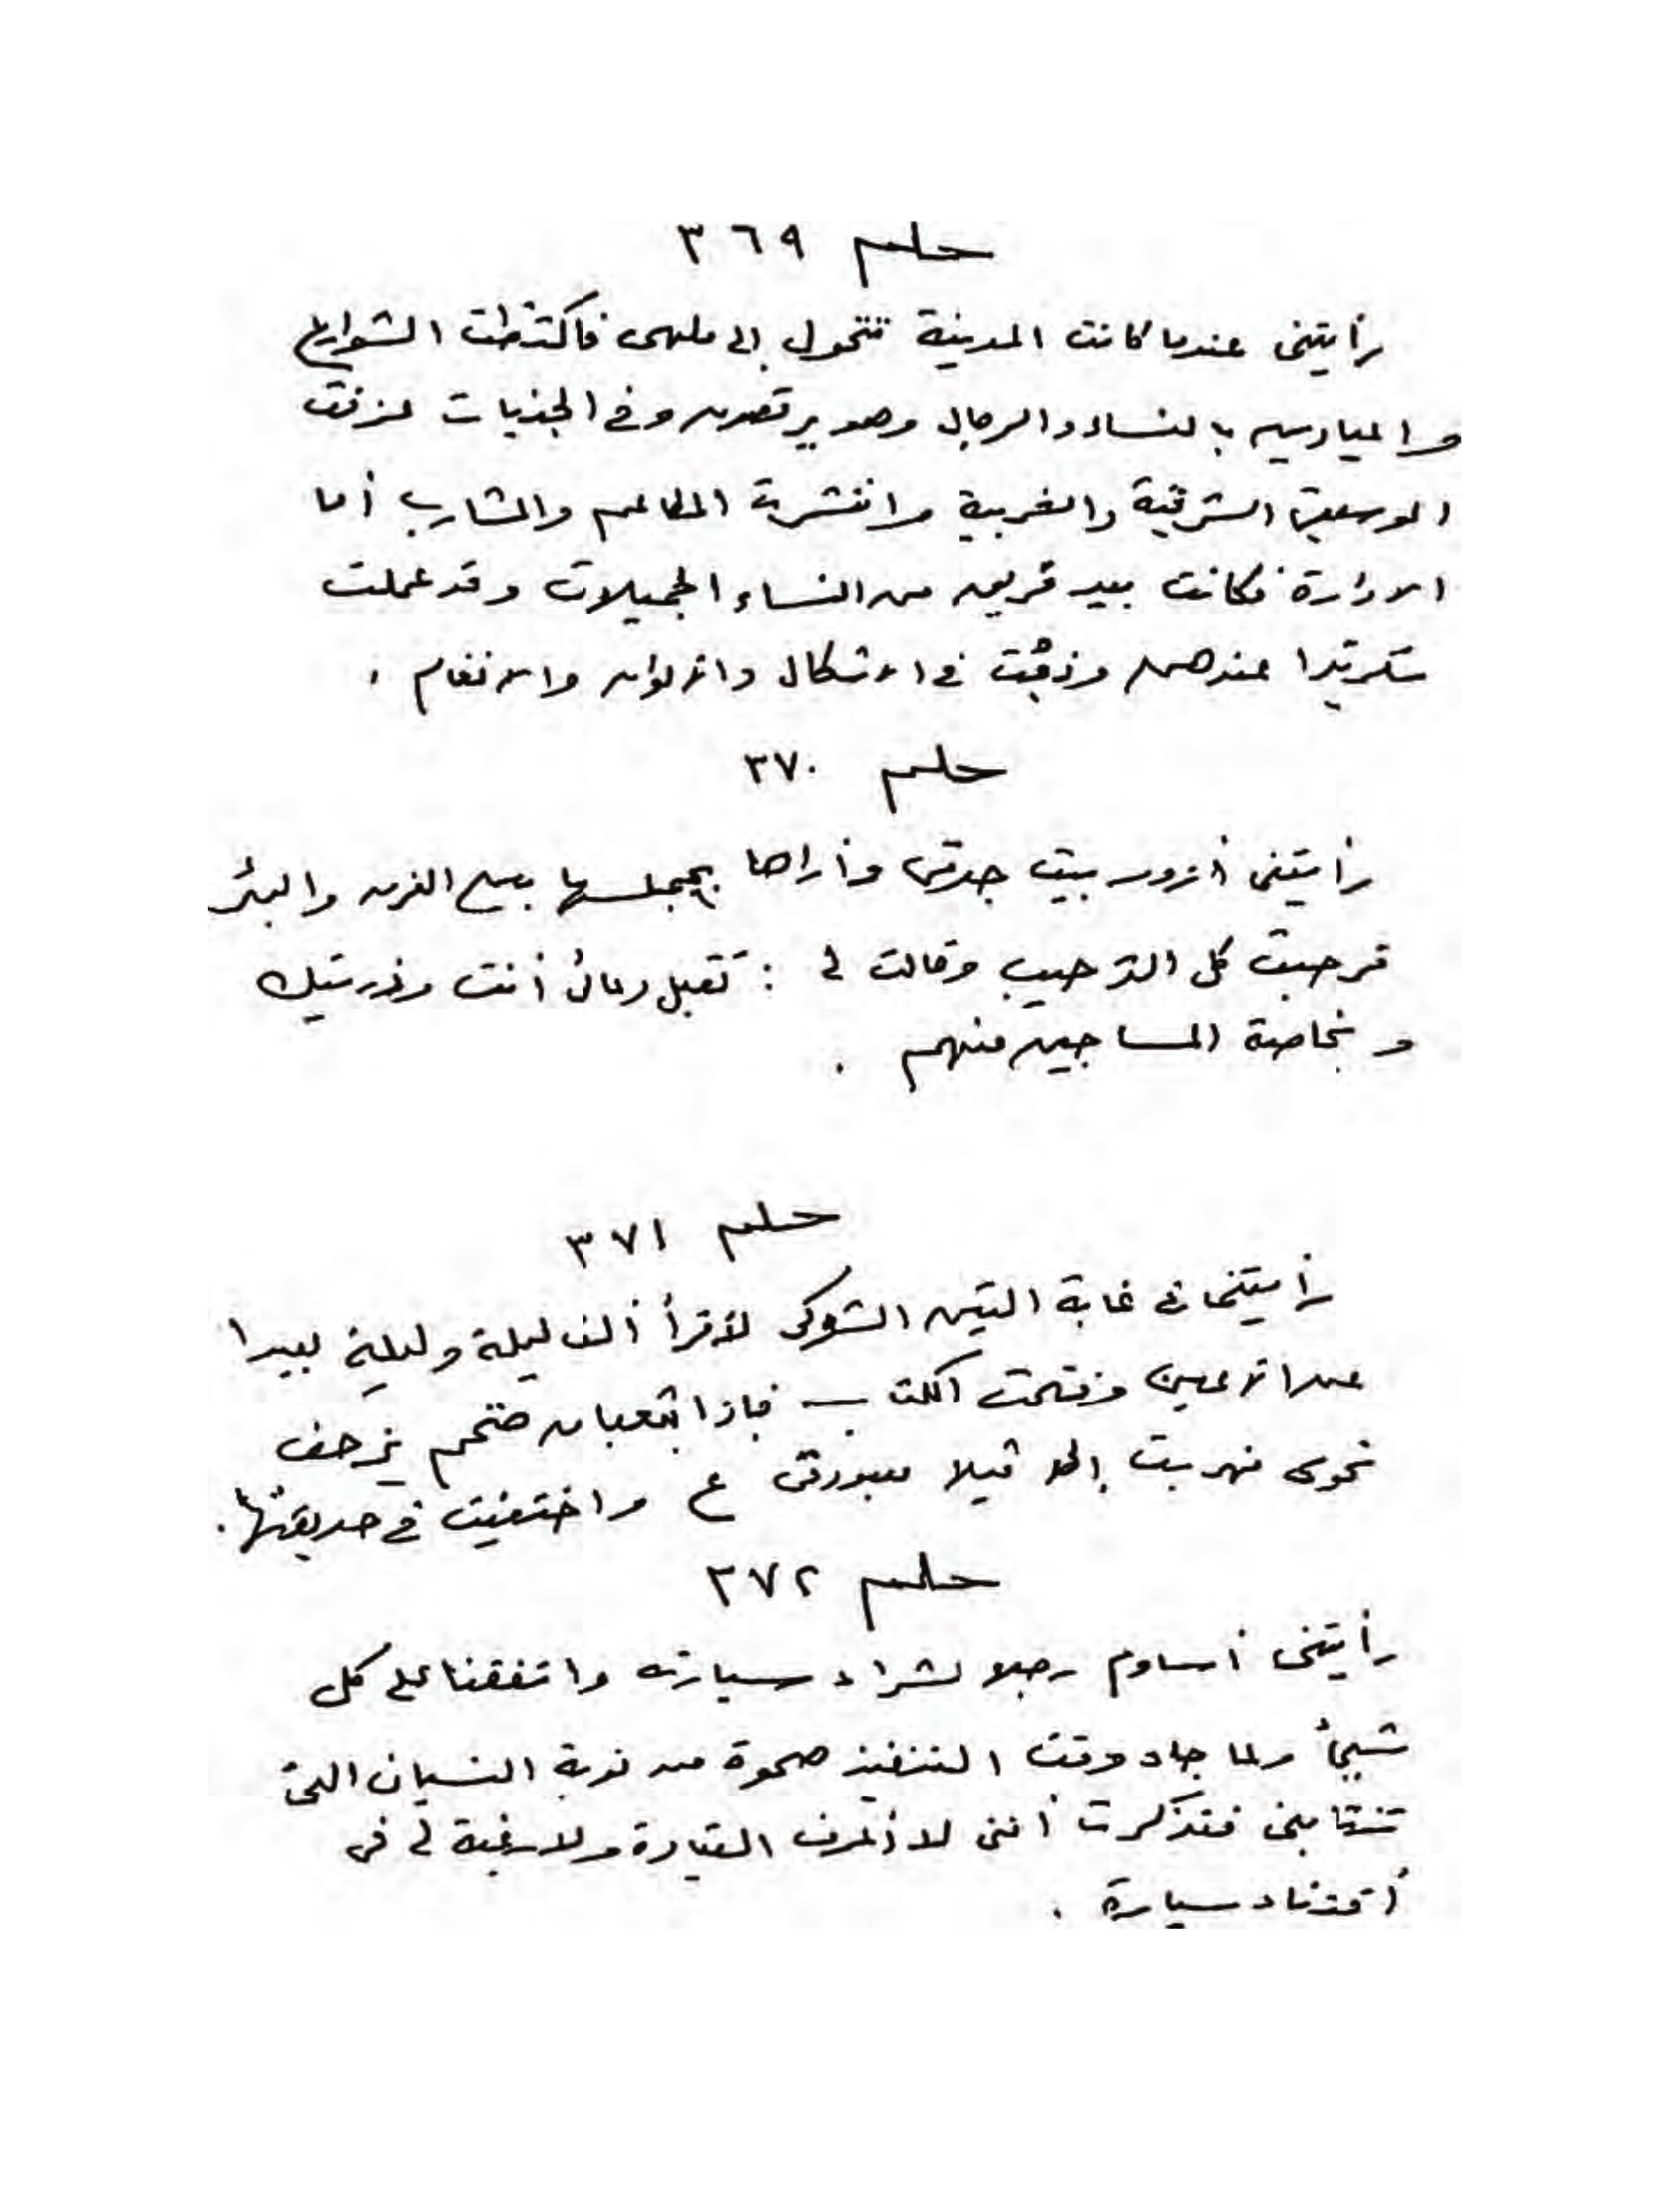 حلم ٣٦٩
رأيتنى عندما كانت المدينة تتحول إلى ملهى فاكتظت الشوارع
والميادين بالنساء والرجال وهم يرقصون وفى الجنبات عزفت
الموسيقى الشرقية والغربية وانتشرت المطاعم والمشارب أما
الادارة فكانت بيد فريق من النساء الجميلات وقد عملت
سكرتيرا عندهن وذبت فى الاشكال والالوان والانغام .
حلم ٣٧٠
رأيتنى أزور بيت جدتى وأراها بمجلسها بين الفرن والبئر
فرحبت كل الترحيب وقالت لى : تقبل دعائى أنت وذريتك
وبخاصة المساجين منهم .
حلم ٣٧١
رأيتنى فى غابة التين الشوكى لأقرأ ألف ليلة وليلة بعيدا
عن الاعين وفتحت الكتاب فإذا بثعبان ضخم يزحف
نحوى فهربت إلى فيلا معبودتى ع واختفيت فى حديقتها .
حلم ٣٧٢
رأيتنى أساوم رجلا لشراء سيارته واتفقنا على كل
شيئ ولما جاء وقت التنفيذ صحوة من نوبة النسيان التى
تنتابنى فتذكرت أننى لا أعرف القيادة ولا رغبة لى فى
أقتناء سيارة .